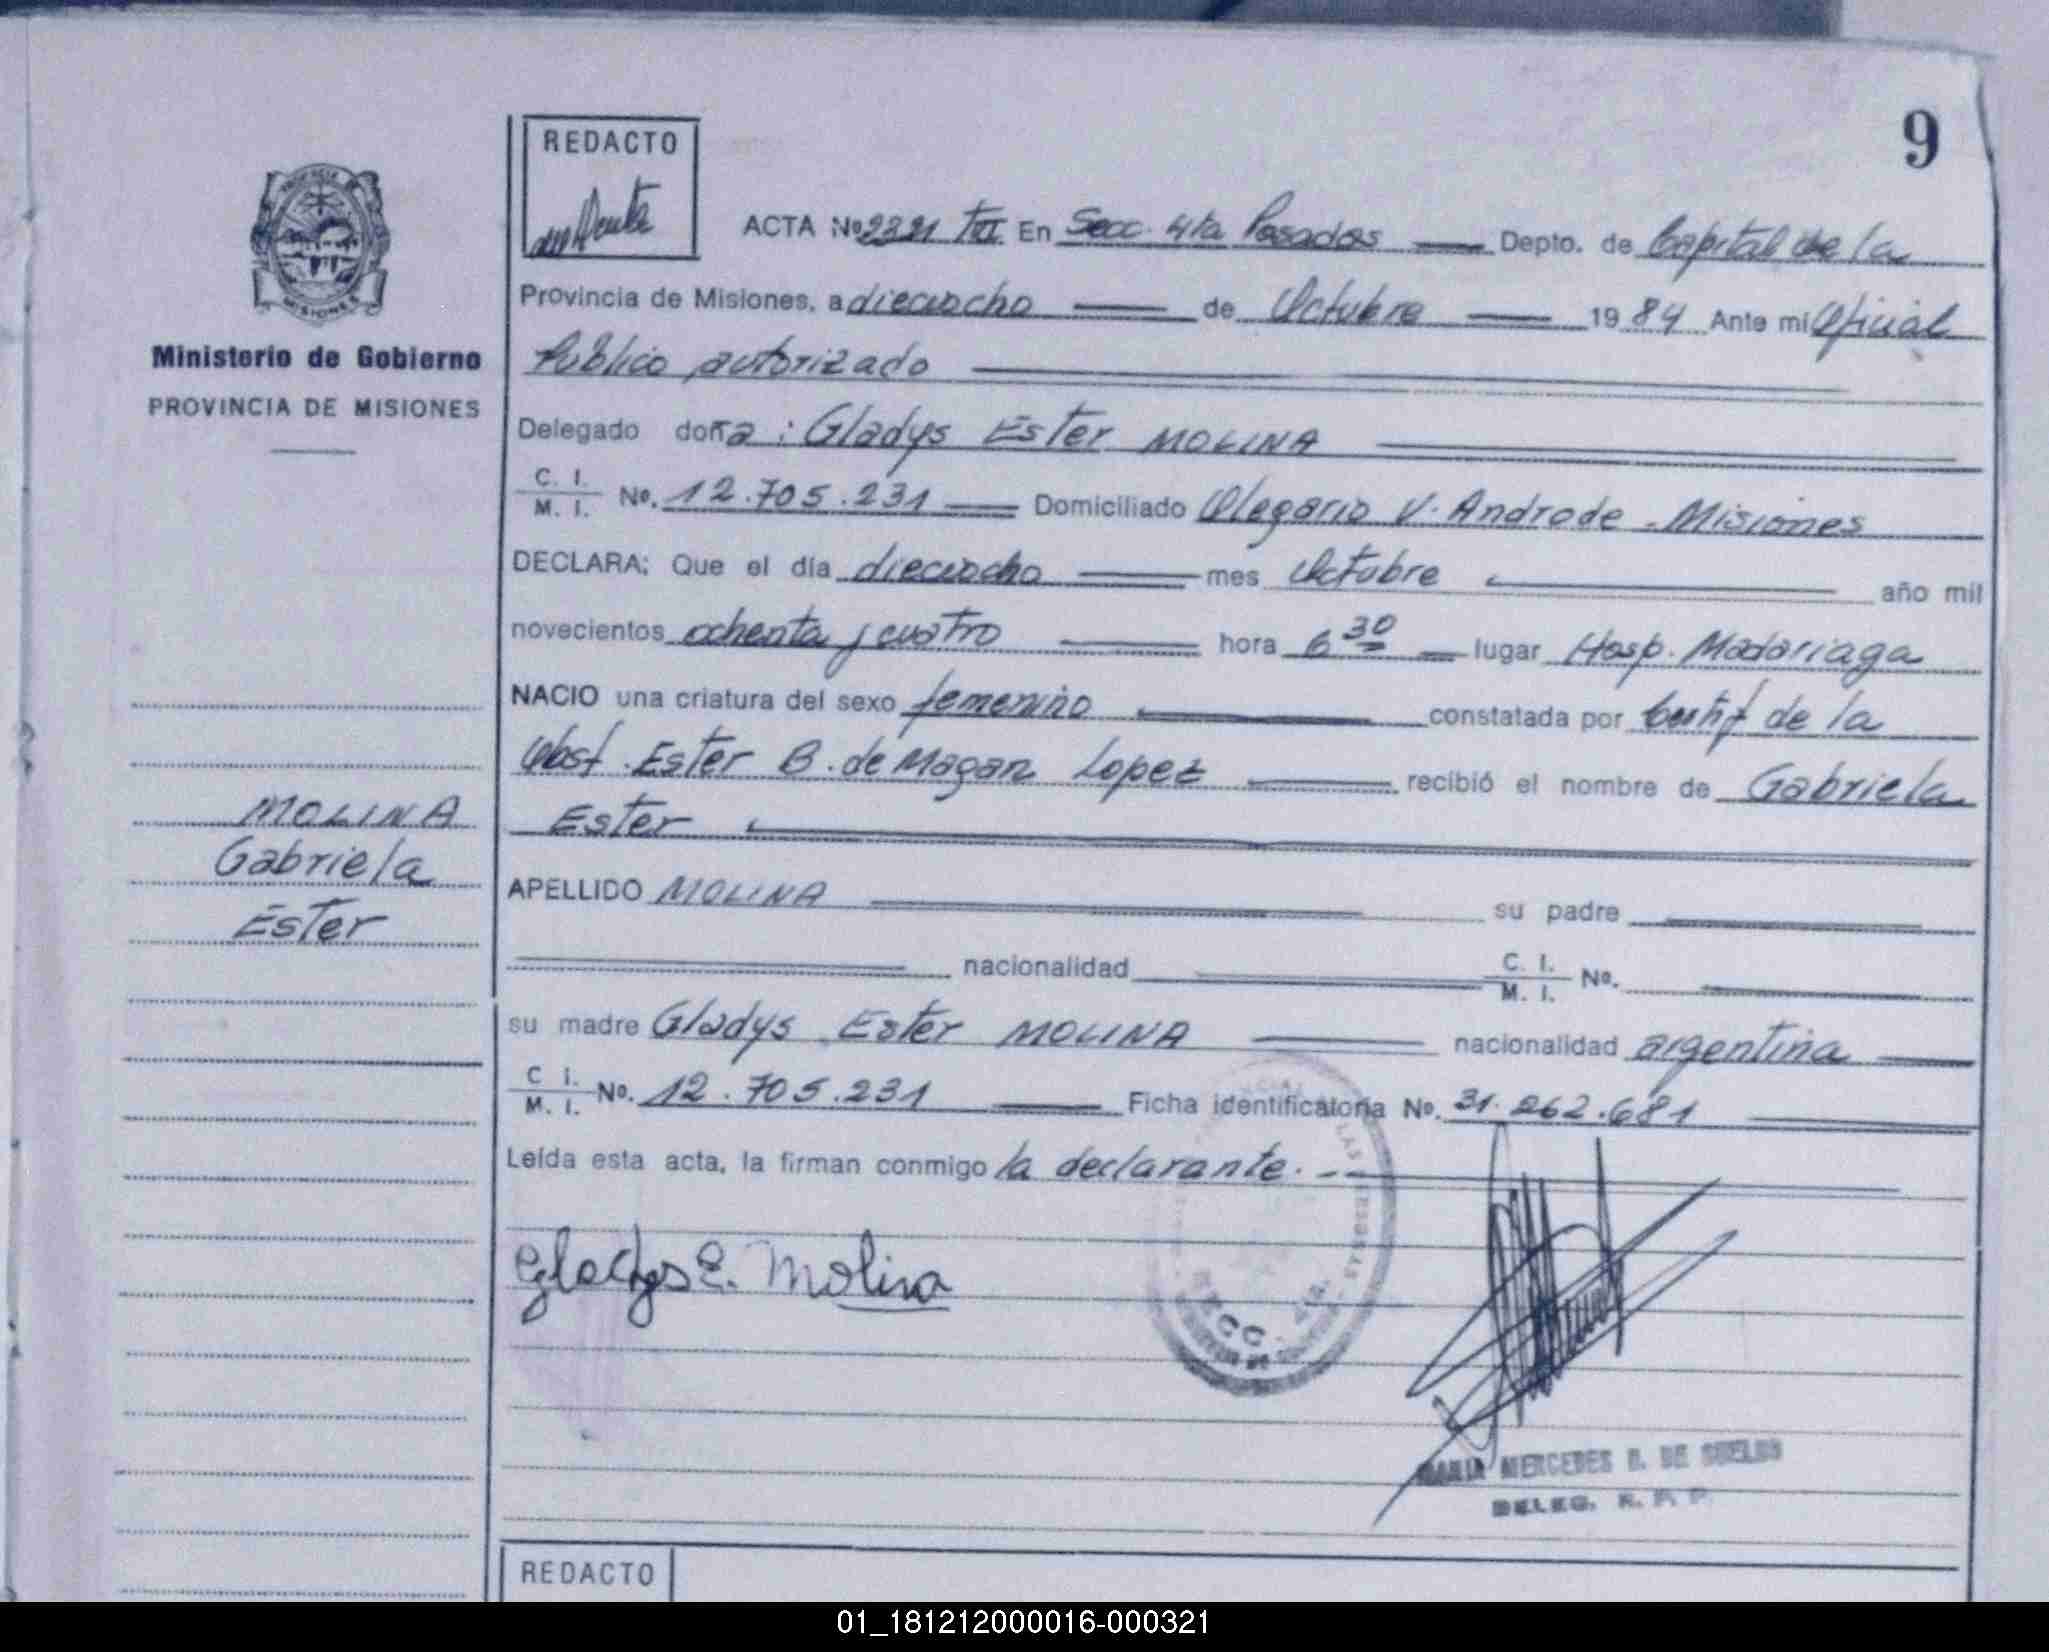 9
REDACTO
PROVINCIA DE
MISIONES
Ministerio de Gobierno
PROVINCIA DE MISIONES
ACTA Nº 2321 TII En Secc. 4ta Posadas Depto. de Capital de la
Provincia de Misiones, a dieciocho de Octubre 1984 Ante mi Oficial
Publico autorizado
Delegado doña: Gladys Ester MOLINA
C. I.
M. I. Nº. 12.705.231 Domiciliado Olegario V. Andrade - Misiones
DECLARA: Que el día dieciocho mes Octubre año mil
novecientos ochenta y cuatro hora 6 30 lugar Hosp. Madariaga
NACIO una criatura del sexo femenino constatada por Certif de la
Obst. Ester B. de Magan Lopez recibió el nombre de Gabriela
Ester
MOLINA
Gabriela
Ester
APELLIDO MOLINA su padre
nacionalidad C. I.
M. I. Nº.
su madre Gladys Ester MOLINA nacionalidad argentina
C I.
M. I. Nº. 12.705.231 Ficha identificatoria Nº. 31.262.681
Leída esta acta, la firman conmigo la declarante.
Gladys E. Molina
LAS PERSONAS
SECC. 4ta.
MARIA MERCEDES B. DE SUELDO
DELEG. R. P. P.
REDACTO
01_181212000016-000321